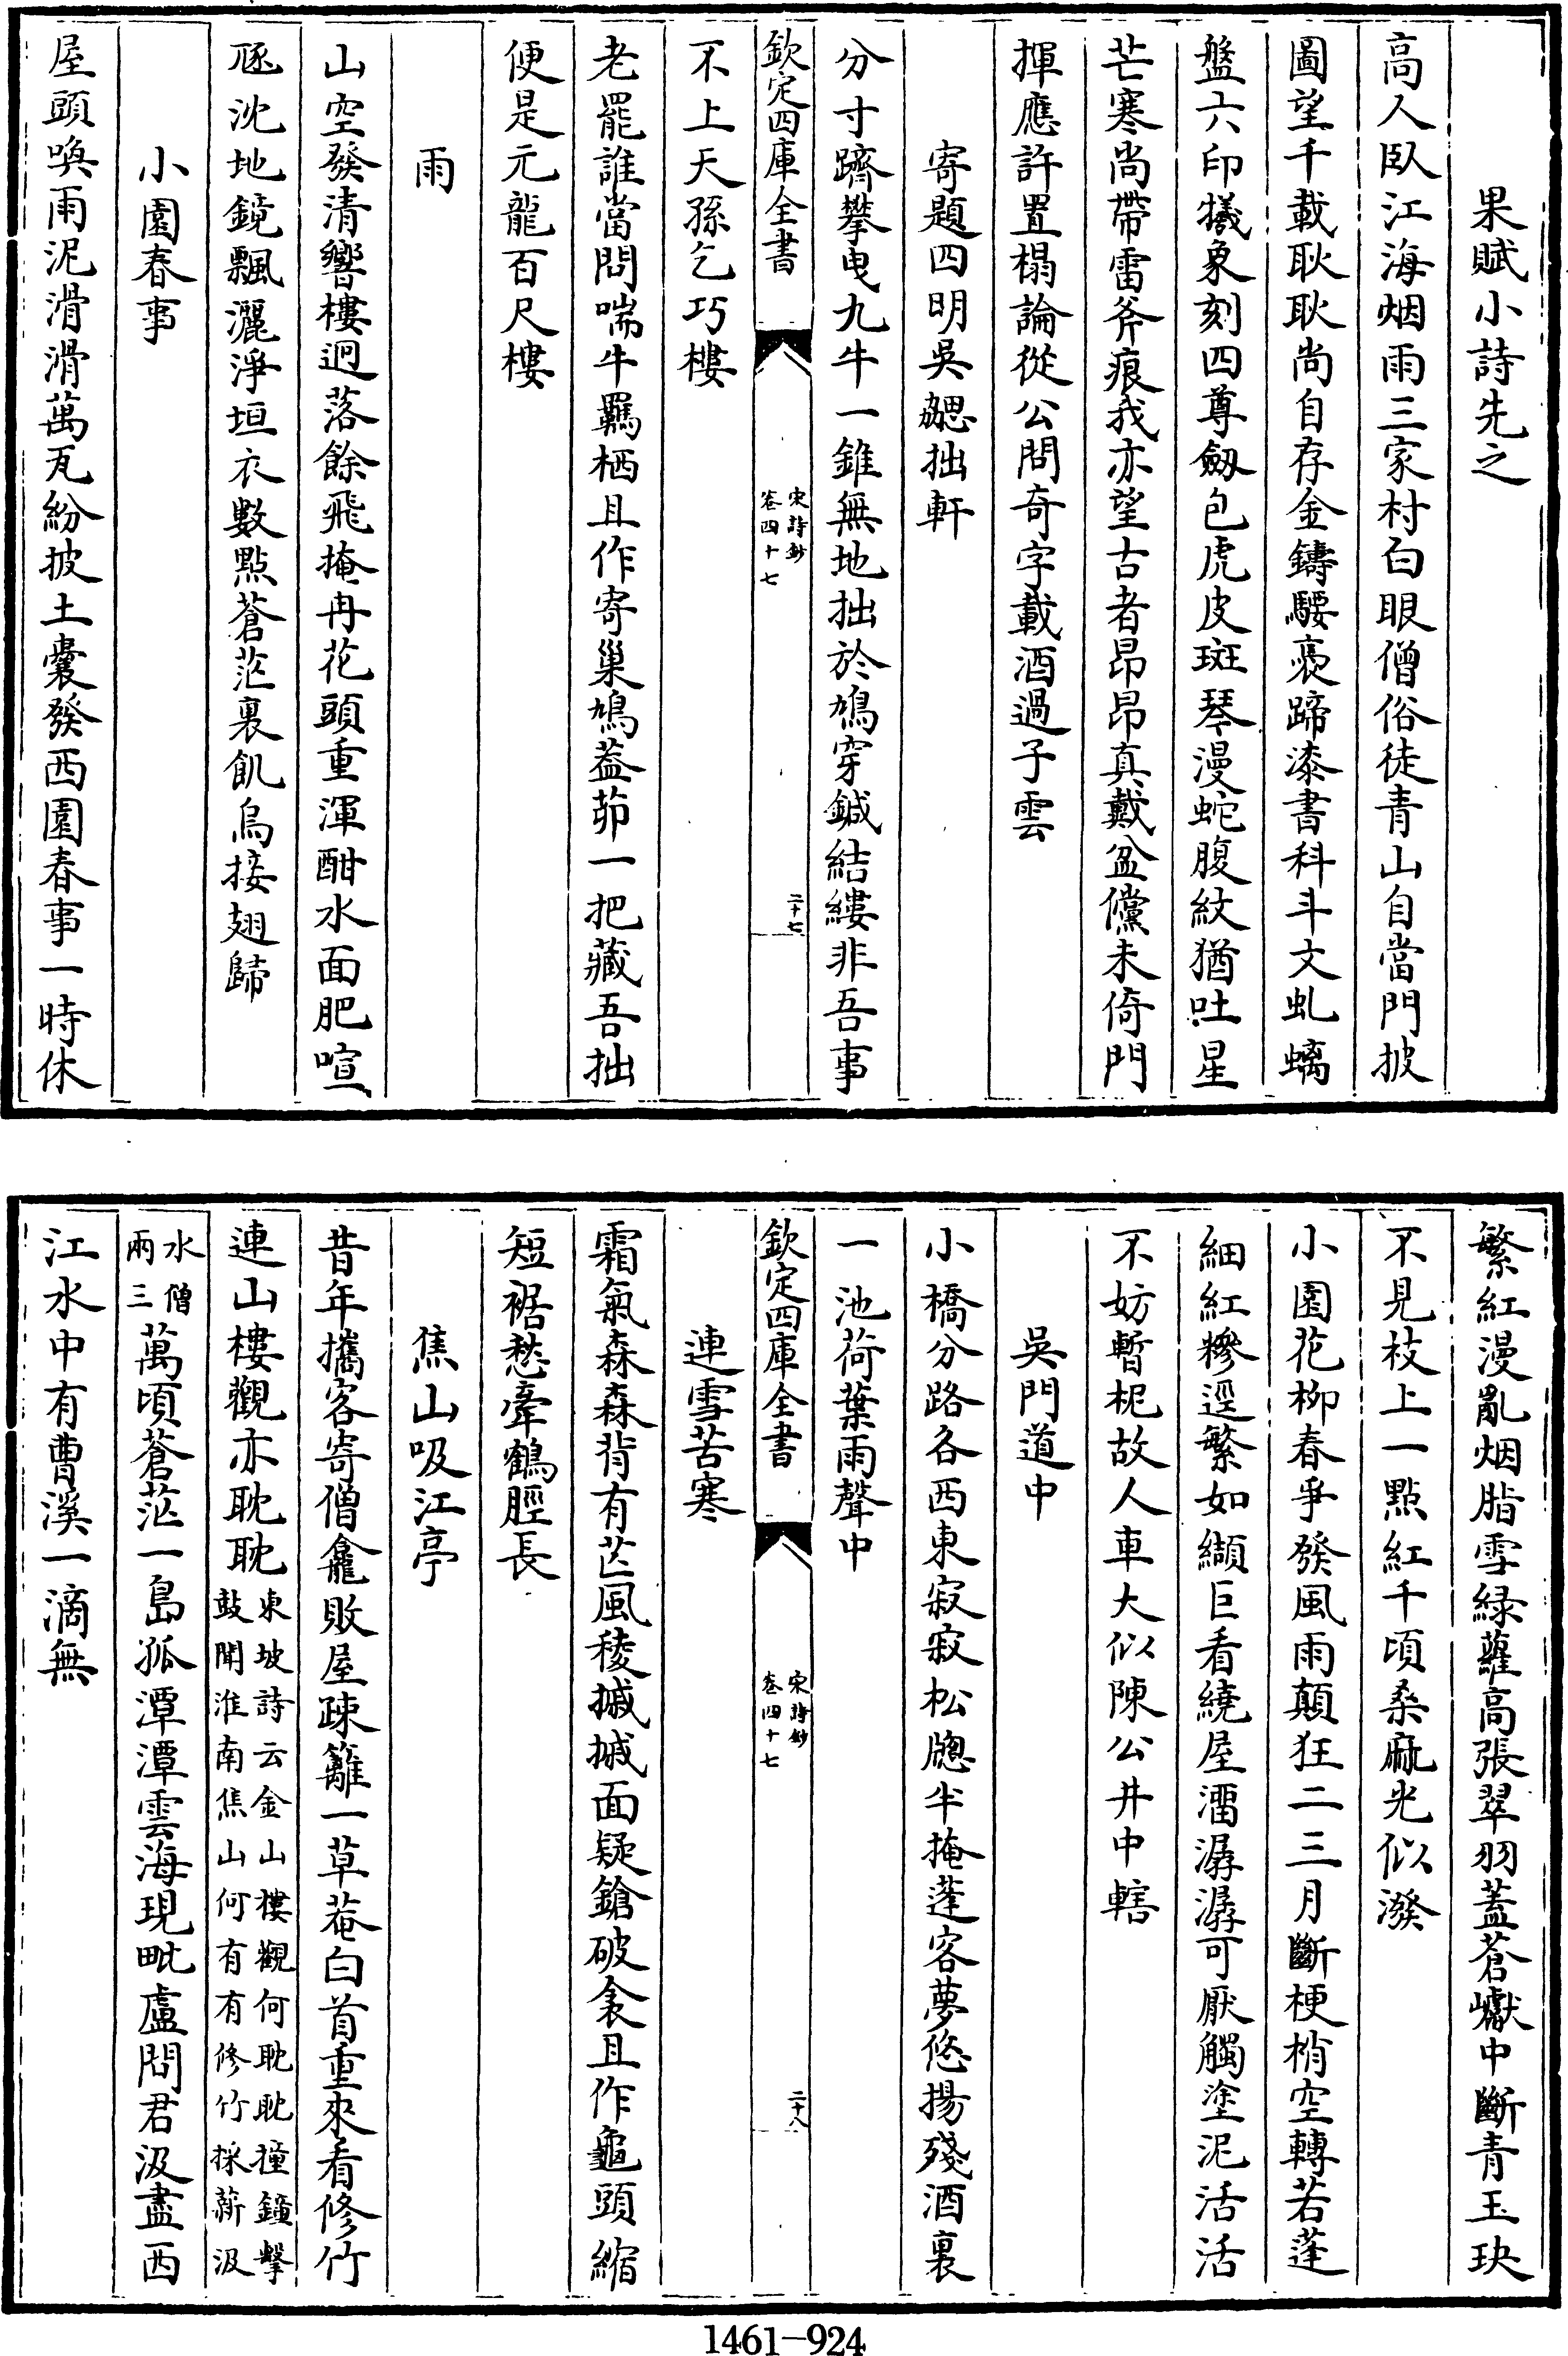 果賦小詩先之
高人臥江海烟雨三家村白眼僧俗徒青山自當門披
圖望千載耿耿尚自存金鑄騕褭蹄漆書科斗文虬螭
盤六印犧象刻四尊劔包虎皮斑琴漫蛇腹紋猶吐星
芒寒尚帶雷斧痕我亦望古者昂昂真戴盆儻未倚門
揮應許置榻論從公問奇字載酒過子雲
寄題四明吳勰拙軒
分寸躋攀曳九牛一錐無地拙於鳩穿鍼結縷非吾事
欽定四庫全書
宋詩鈔
卷四十七
二十七
不上天孫乞巧樓
老罷誰當問喘牛羈栖且作寄巢鳩葢茆一把藏吾拙
便是元龍百尺樓
雨
山空發清響樓迥落餘飛掩冉花頭重渾酣水面肥喧
豗沈地鏡飄灑淨垣衣數點蒼茫裏飢烏接翅歸
小園春事
屋頭喚雨泥滑滑萬瓦紛披土囊發西園春事一時休
繁紅漫亂烟脂雪綠蘿高張翠羽蓋蒼巘中斷青玉玦
不見枝上一點紅千頃桑麻光似潑
小園花柳春爭發風雨顛狂二三月斷梗梢空轉若蓬
細紅糝逕繁如纈巨看繞屋澑潺潺可厭觸塗泥活活
不妨暫柅故人車大似陳公井中轄
吳門道中
小橋分路各西東寂寂松牕半掩蓬客夢悠揚殘酒裏
一池荷葉雨聲中
欽定四庫全書
宋詩鈔
卷四十七
二十八
連雪苦寒
霜氣森森背有芒風稜摵摵面疑鎗破衾且作龜頭縮
短裾愁牽鶴脛長
焦山吸江亭
昔年攜客寄僧龕敗屋疎籬一草菴白首重來看修竹
連山樓觀亦耽耽東坡詩云金山樓觀何耽耽撞鐘擊
鼓聞淮南焦山何有有修竹採薪汲
水僧
兩三萬頃蒼茫一島孤潭潭雲海現毗盧問君汲盡西
江水中有曹溪一滴無
1461-924